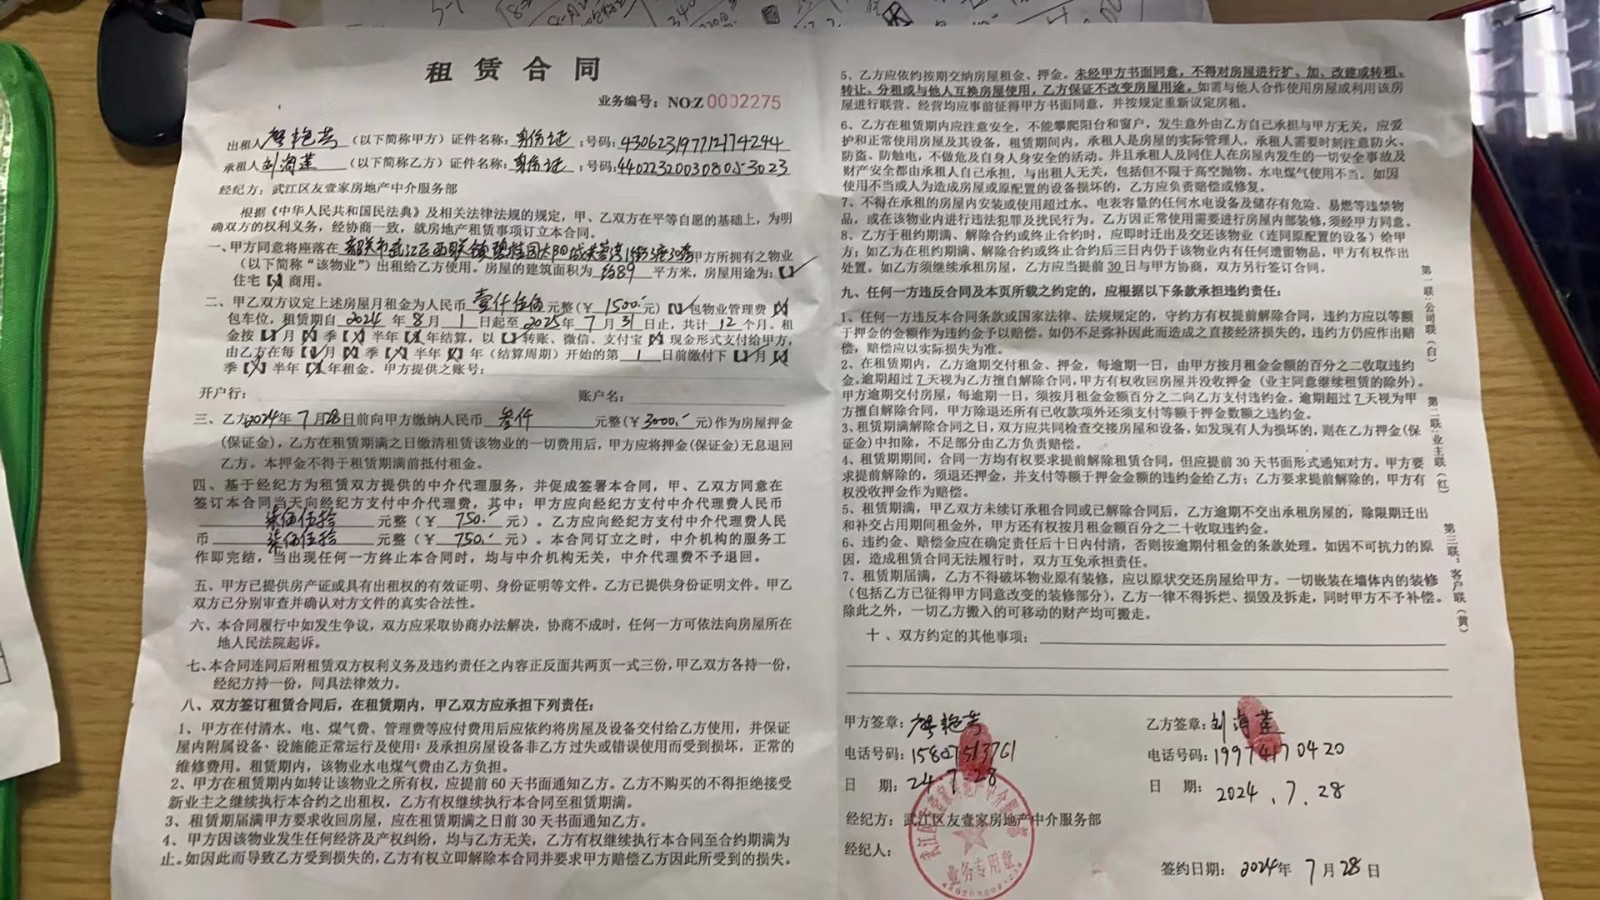 租赁合同
业务编号：NO:Z 0002275
出租人 （以下简称甲方）证件名称：身份证；号码：430623197712174244
承租人刘海莲（以下简称乙方）证件名称：身份证；号码：440223200308053023
经纪方：武江区友壹家房地产中介服务部
根据《中华人民共和国民法典》及相关法律法规的规定，甲、乙双方在平等自愿的基础上，为明
确双方的权利义务，经协商一致，就房地产租赁事项订立本合同。
一、甲方同意将座落在 韶关市武江区西联镇碧桂园太阳城 甲方所拥有之物业
（以下简称“该物业”）出租给乙方使用。房屋的建筑面积为 约89 平方米，房屋用途为：【✓】
住宅【×】商用。
二、甲乙双方议定上述房屋月租金为人民币 壹仟伍佰 元整（￥ 1500.- 元）【✓】包物业管理费【×】
包车位，租赁期自 2024 年 8 月 1 日起至 2025 年 7 月 31 日止，共计 12 个月。租
金按【✓】月【×】季【×】半年【×】年结算，以【✓】转账、微信、支付宝【×】现金形式支付给甲方，
由乙方在每【✓】月【×】季【×】半年【×】年（结算周期）开始的第 1 日前缴付下【✓】月【×】
季【×】半年【×】年租金。甲方提供之账号：
开户行： 账户名：
三、乙方2024年 7月28日前向甲方缴纳人民币 叁仟 元整（￥3000.- 元）作为房屋押金
（保证金），乙方在租赁期满之日缴清租赁该物业的一切费用后，甲方应将押金（保证金）无息退回
乙方。本押金不得于租赁期满前抵付租金。
四、基于经纪方为租赁双方提供的中介代理服务，并促成签署本合同，甲、乙双方同意在
签订本合同当天向经纪方支付中介代理费，其中：甲方应向经纪方支付中介代理费人民币
柒佰伍拾 元整（￥ 750.- 元）。乙方应向经纪方支付中介代理费人民
币 柒佰伍拾 元整（￥ 750.- 元）。本合同订立之时，中介机构的服务工
作即完结，当出现任何一方终止本合同时，均与中介机构无关，中介代理费不予退回。
五、甲方已提供房产证或具有出租权的有效证明、身份证明等文件。乙方已提供身份证明文件。甲乙
双方已分别审查并确认对方文件的真实合法性。
六、本合同履行中如发生争议，双方应采取协商办法解决，协商不成时，任何一方可依法向房屋所在
地人民法院起诉。
七、本合同连同后附租赁双方权利义务及违约责任之内容正反面共两页一式三份，甲乙双方各持一份，
经纪方持一份，同具法律效力。
八、双方签订租赁合同后，在租赁期内，甲乙双方应承担下列责任：
1、甲方在付清水、电、煤气费、管理费等应付费用后应依约将房屋及设备交付给乙方使用，并保证
屋内附属设备、设施能正常运行及使用；及承担房屋设备非乙方过失或错误使用而受到损坏，正常的
维修费用。租赁期内，该物业水电煤气费由乙方负担。
2、甲方在租赁期内如转让该物业之所有权，应提前60天书面通知乙方。乙方不购买的不得拒绝接受
新业主之继续执行本合约之出租权，乙方有权继续执行本合同至租赁期满。
3、租赁期届满甲方要求收回房屋，应在租赁期满之日前30天书面通知乙方。
4、甲方因该物业发生任何经济及产权纠纷，均与乙方无关，乙方有权继续执行本合同至合约期满为
止。如因此而导致乙方受到损失的，乙方有权立即解除本合同并要求甲方赔偿乙方因此所受到的损失。
5、乙方应依约按期交纳房屋租金、押金。未经甲方书面同意，不得对房屋进行扩、加、改建或转租、
转让、分租或与他人互换房屋使用，乙方保证不改变房屋用途。如需与他人合作使用房屋或利用该房
屋进行联营、经营均应事前征得甲方书面同意，并按规定重新议定房租。
6、乙方在租赁期内应注意安全，不能攀爬阳台和窗户，发生意外由乙方自己承担与甲方无关，应爱
护和正常使用房屋及其设备，租赁期间内，承租人是房屋的实际管理人，承租人需要时刻注意防火、
防盗、防触电，不做危及自身人身安全的活动。并且承租人及同住人在房屋内发生的一切安全事故及
财产安全都由承租人自己承担，与出租人无关，包括但不限于高空抛物、水电煤气使用不当。如因
使用不当或人为造成房屋或原配置的设备损坏的，乙方应负责赔偿或修复。
7、不得在承租的房屋内安装或使用超过水、电表容量的任何水电设备及储存有危险、易燃等违禁物
品，或在该物业内进行违法犯罪及扰民行为，乙方因正常使用需要进行房屋内部装修，须经甲方同意。
8、乙方于租约期满、解除合约或终止合约时，应即时迁出及交还该物业（连同原配置的设备）给甲
方；如乙方在租约期满、解除合约或终止合约后三日内仍于该物业内有任何遗留物品，甲方有权作出
处置。如乙方须继续承租房屋，乙方应当提前30日与甲方协商，双方另行签订合同。
九、任何一方违反合同及本页所载之约定的，应根据以下条款承担违约责任：
1、任何一方违反本合同条款或国家法律、法规规定的，守约方有权提前解除合同，违约方应以等额
于押金的金额作为违约金予以赔偿。如仍不足弥补因此而造成之直接经济损失的，违约方仍应作出赔
偿，赔偿应以实际损失为准。
2、在租赁期内，乙方逾期交付租金、押金，每逾期一日，由甲方按月租金金额的百分之二收取违约
金。逾期超过7天视为乙方擅自解除合同，甲方有权收回房屋并没收押金（业主同意继续租赁的除外）。
甲方逾期交付房屋，每逾期一日，须按月租金金额百分之二向乙方支付违约金。逾期超过7天视为甲
方擅自解除合同，甲方除退还所有已收款项外还须支付等额于押金数额之违约金。
3、租赁期满解除合同之日，双方应共同检查交接房屋和设备，如发现有人为损坏的，则在乙方押金（保
证金）中扣除，不足部分由乙方负责赔偿。
4、租赁期期间，合同一方均有权要求提前解除租赁合同，但应提前30天书面形式通知对方。甲方要
求提前解除的，须退还押金，并支付等额于押金金额的违约金给乙方；乙方要求提前解除的，甲方有
权没收押金作为赔偿。
5、租赁期满，甲乙双方未续订承租合同或已解除合同后，乙方逾期不交出承租房屋的，除限期迁出
和补交占用期间租金外，甲方还有权按月租金额百分之二十收取违约金。
6、违约金、赔偿金应在确定责任后十日内付清，否则按逾期付租金的条款处理。如因不可抗力的原
因，造成租赁合同无法履行时，双方互免承担责任。
7、租赁期届满，乙方不得破坏物业原有装修，应以原状交还房屋给甲方。一切嵌装在墙体内的装修
（包括乙方已征得甲方同意改变的装修部分），乙方一律不得拆烂、损毁及拆走，同时甲方不予补偿。
除此之外，一切乙方搬入的可移动的财产均可搬走。
十、双方约定的其他事项：
甲方签章： 乙方签章：刘海莲
电话号码：15807513761 电话号码：19974170420
日 期：24.7.28 日 期：2024.7.28
经纪方：武江区友壹家房地产中介服务部
经纪人：
业务专用章
签约日期：2024年 7月28日
第一联：公司联（白）
第二联：业主联（红）
第三联：客户联（黄）